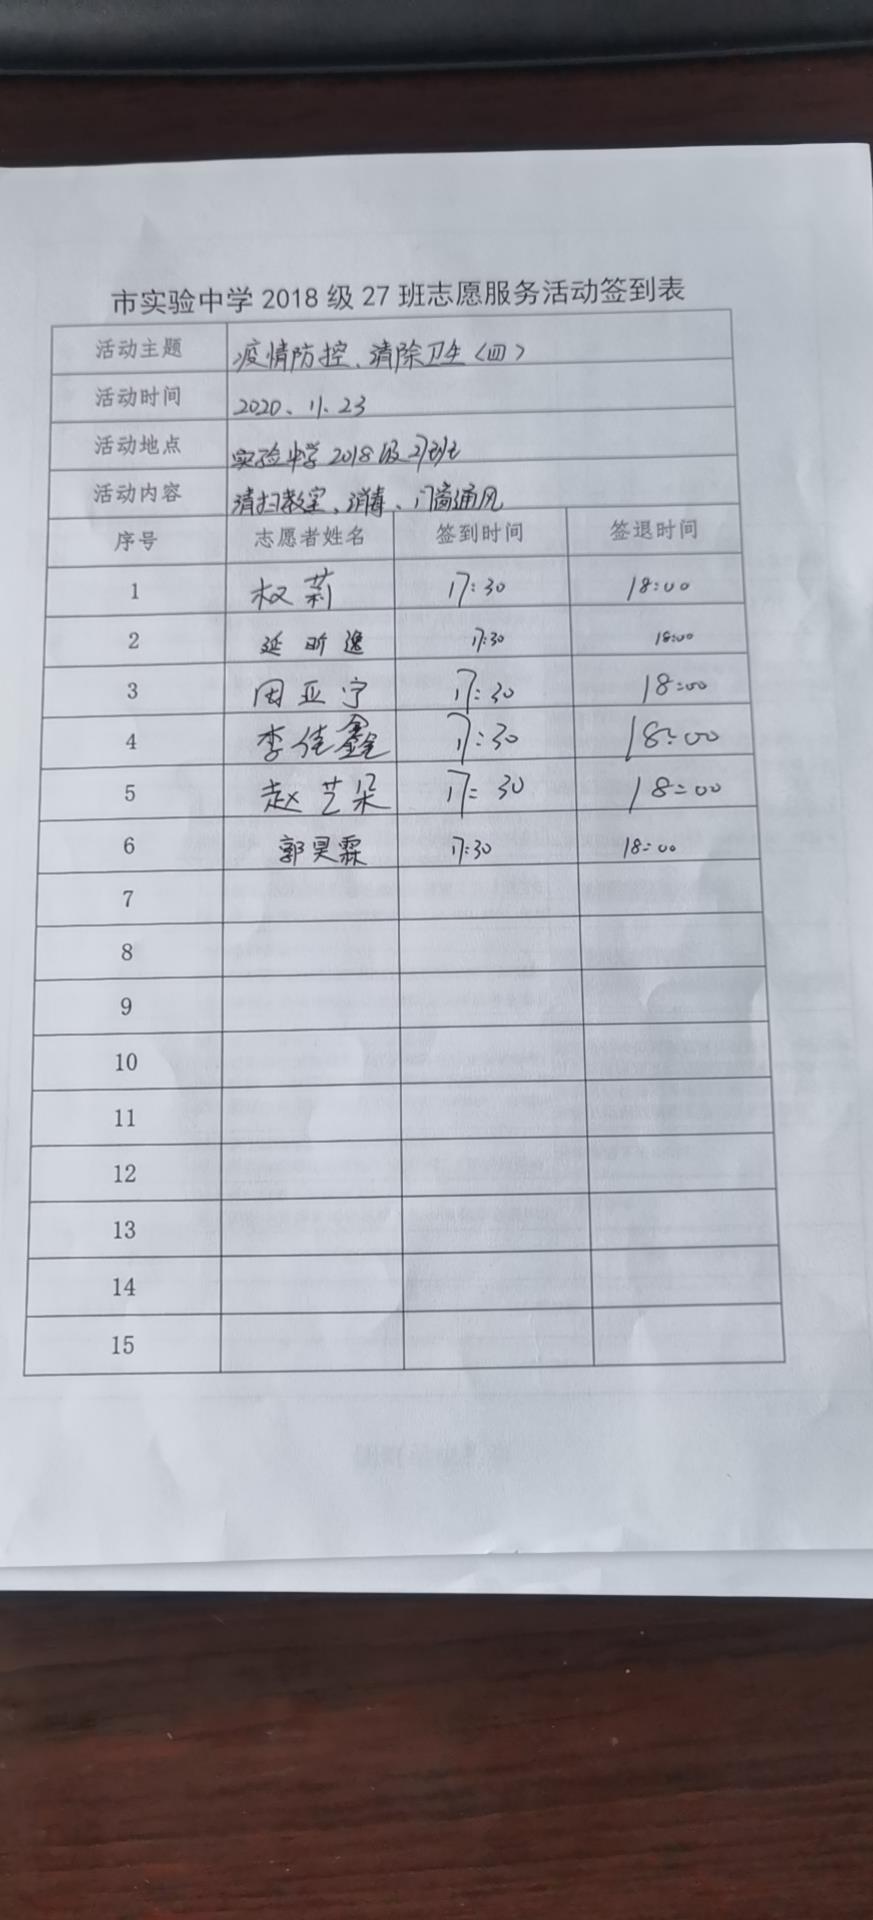 市实验中学 2018 级 27 班志愿服务活动签到表
活动主题 疫情防控、清除卫生〈四〉
活动时间 2020、11、23
活动地点 实验中学2018级27班
活动内容 清扫教室、消毒、门窗通风
序号 志愿者姓名 签到时间 签退时间
1 权莉 17:30 18:00
2 延昕逸 17:30 18:00
3 周亚宁 17:30 18:00
4 李佳鑫 17:30 18:00
5 赵艺朵 17:30 18:00
6 郭昊霖 17:30 18:00
7
8
9
10
11
12
13
14
15